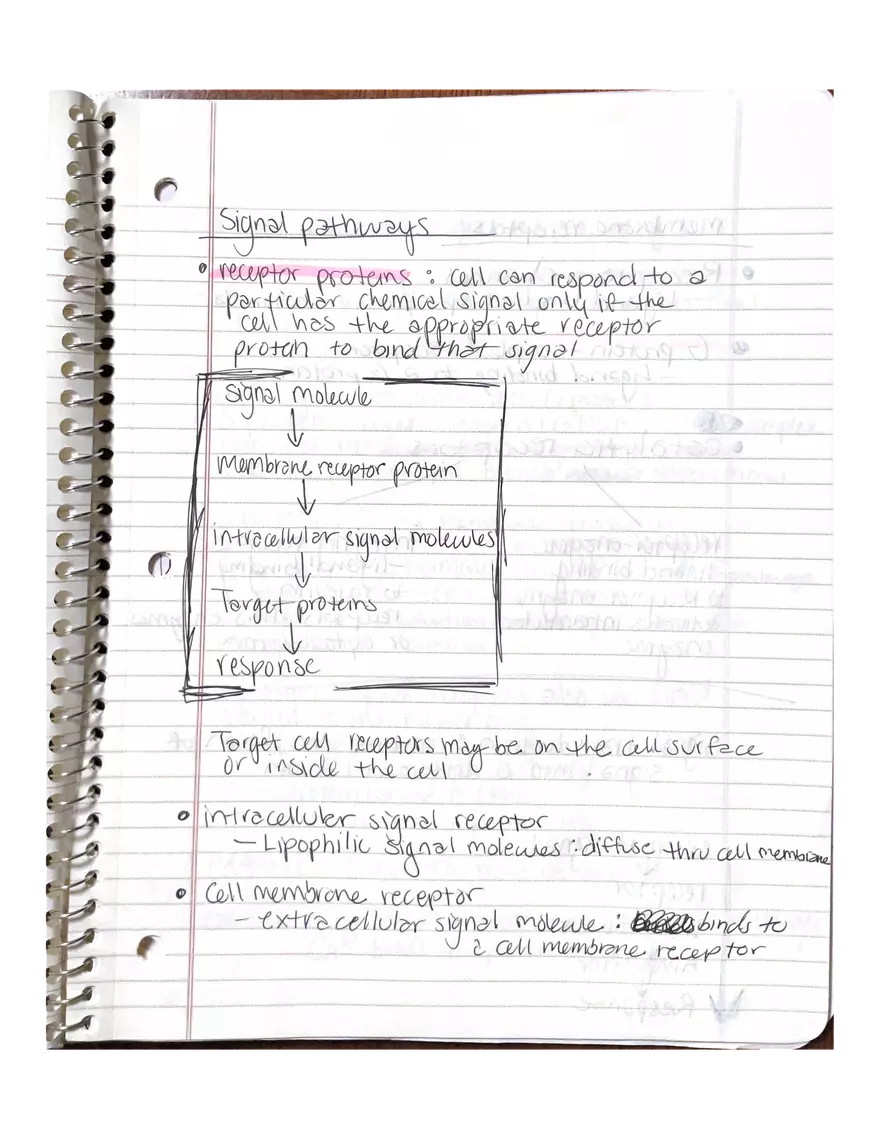 Signal pathways
• receptor proteins : cell can respond to a
particular chemical signal only if the
cell has the appropriate receptor
protein to bind that signal
Signal molecule
↓
Membrane receptor protein
↓
intracellular signal molecules
↓
Target proteins
↓
response
Target cell receptors may be on the cell surface
or inside the cell
• intracellular signal receptor
– Lipophilic signal molecules : diffuse thru cell membrane
• Cell membrane receptor
– extracellular signal molecule : binds to
a cell membrane receptor